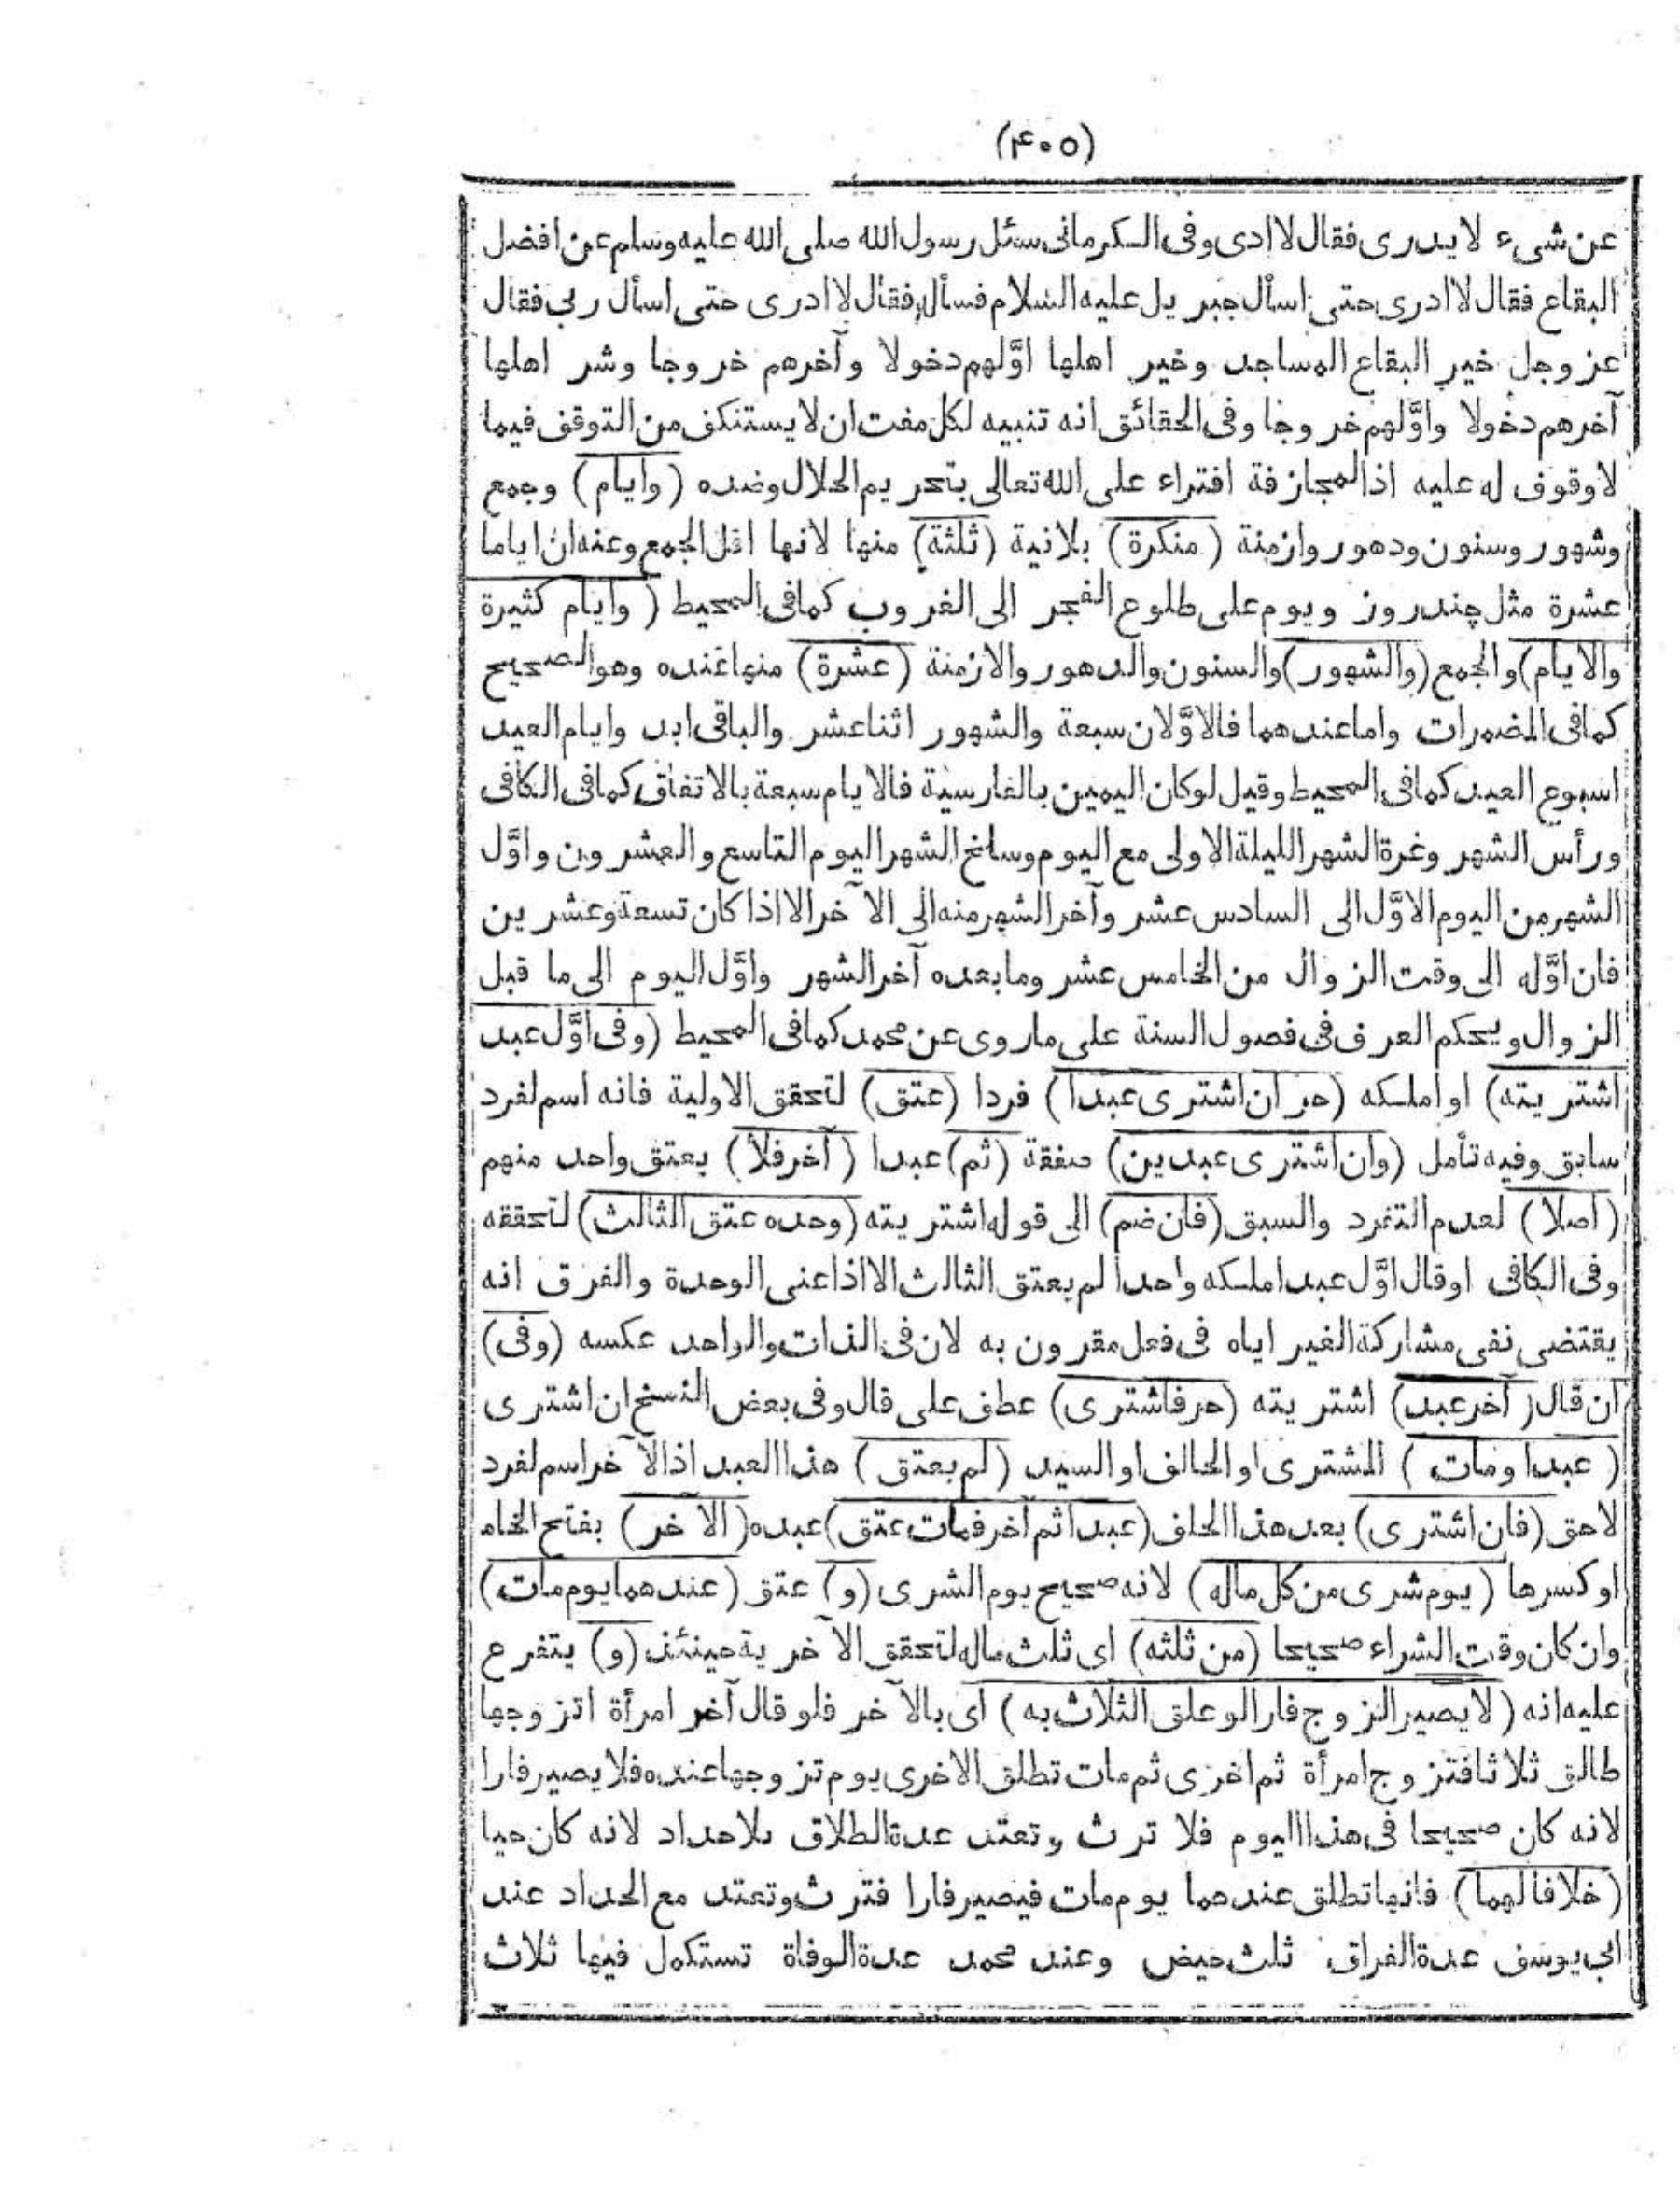 (۴۰۵)
عن شیء لا يدرى فقال لا ادى وفى الكرمانى سئل رسول الله صلى الله عليه وسلم عن افضل
البقاع فقال لا ادرى حتى اسأل جبر يل عليه السلام فسأل فقال لا ادرى حتى اسأل ربى فقال
عز وجل خير البقاع المساجد وخير اهلها اوَّلهم دخولا وآخرهم خروجا وشر اهلها
آخرهم دخولا واوَّلهم خروجا وفى الحقائق انه تنبيه لكل مفت ان لا يستنكف من التوقف فيما
لا وقوف له عليه اذ المجازفة افتراء على الله تعالى بتحريم الحلال وضده (وايام) وجمع
وشهور وسنون ودهور وازمنة (منكرة) بلانية (ثلثة) منها لانها اقل الجمع وعنه ان اياما
عشرة مثل چند روز ويوم على طلوع الفجر الى الغروب كمافى المحيط (وايام كثيرة
والايام) والجمع (والشهور) والسنون والدهور والازمنة (عشرة) منها عنده وهو الصحيح
كمافى المضمرات واما عندهما فالاوَّلان سبعة والشهور اثنا عشر والباقى ابد وايام العيد
اسبوع العيد كمافى المحيط وقيل لوكان اليمين بالفارسية فالايام سبعة بالاتفاق كمافى الكافى
ورأس الشهر وغرة الشهر الليلة الاولى مع اليوم وسلخ الشهر اليوم التاسع والعشرون واوَّل
الشهر من اليوم الاوَّل الى السادس عشر وآخر الشهر منه الى الآخر الا اذا كان تسعة وعشرين
فان اوَّله الى وقت الزوال من الخامس عشر وما بعده آخر الشهر واوَّل اليوم الى ما قبل
الزوال ويحكم العرف فى فصول السنة على ماروى عن محمد كمافى المحيط (وفى اوَّل عبد
اشتريته) او املكه (حر ان اشترى عبدا) فردا (عتق) لتحقق الاولية فانه اسم لفرد
سابق وفيه تأمل (وان اشترى عبدين) صفقة (ثم) عبدا (آخر فلا) يعتق واحد منهم
(اصلا) لعدم التفرد والسبق (فان ضم) الى قوله اشتريته (وحده عتق الثالث) لتحققه
وفى الكافى اوقال اوَّل عبد املكه واحدا لم يعتق الثالث الا اذا عنى الوحدة والفرق انه
يقتضى نفى مشاركة الغير اياه فى فعل مقرون به لان فى الذات والواحد عكسه (وفى)
ان قال (آخر عبد) اشتريته (حر فاشترى) عطف على قال وفى بعض النسخ ان اشترى
(عبدا ومات) المشترى او الحالف او السيد (لم يعتق) هذا العبد اذ الآخر اسم لفرد
لاحق (فان اشترى) بعد هذا الحلف (عبدا ثم آخر فمات عتق) عبده (الآخر) بفتح الخاء
او كسرها (يوم شرى من كل ماله) لانه صحيح يوم الشرى (و) عتق (عندهما يوم مات)
وان كان وقت الشراء صحيحا (من ثلثه) اى ثلث ماله لتحقق الآخرية حينئذ (و) يتفرع
عليه انه (لا يصير الزوج فارا لو علق الثلاث به) اى بالآخر فلو قال آخر امرأة اتزوجها
طالق ثلاثا فتزوج امرأة ثم اخرى ثم مات تطلق الاخرى يوم تزوجها عنده فلا يصير فارا
لانه كان صحيحا فى هذا اليوم فلا ترث وتعتد عدة الطلاق بلا حداد لانه كان حيا
(خلافا لهما) فانها تطلق عندهما يوم مات فيصير فارا فترث وتعتد مع الحداد عند
ابى يوسف عدة الفراق ثلث حيض وعند محمد عدة الوفاة تستكمل فيها ثلاث